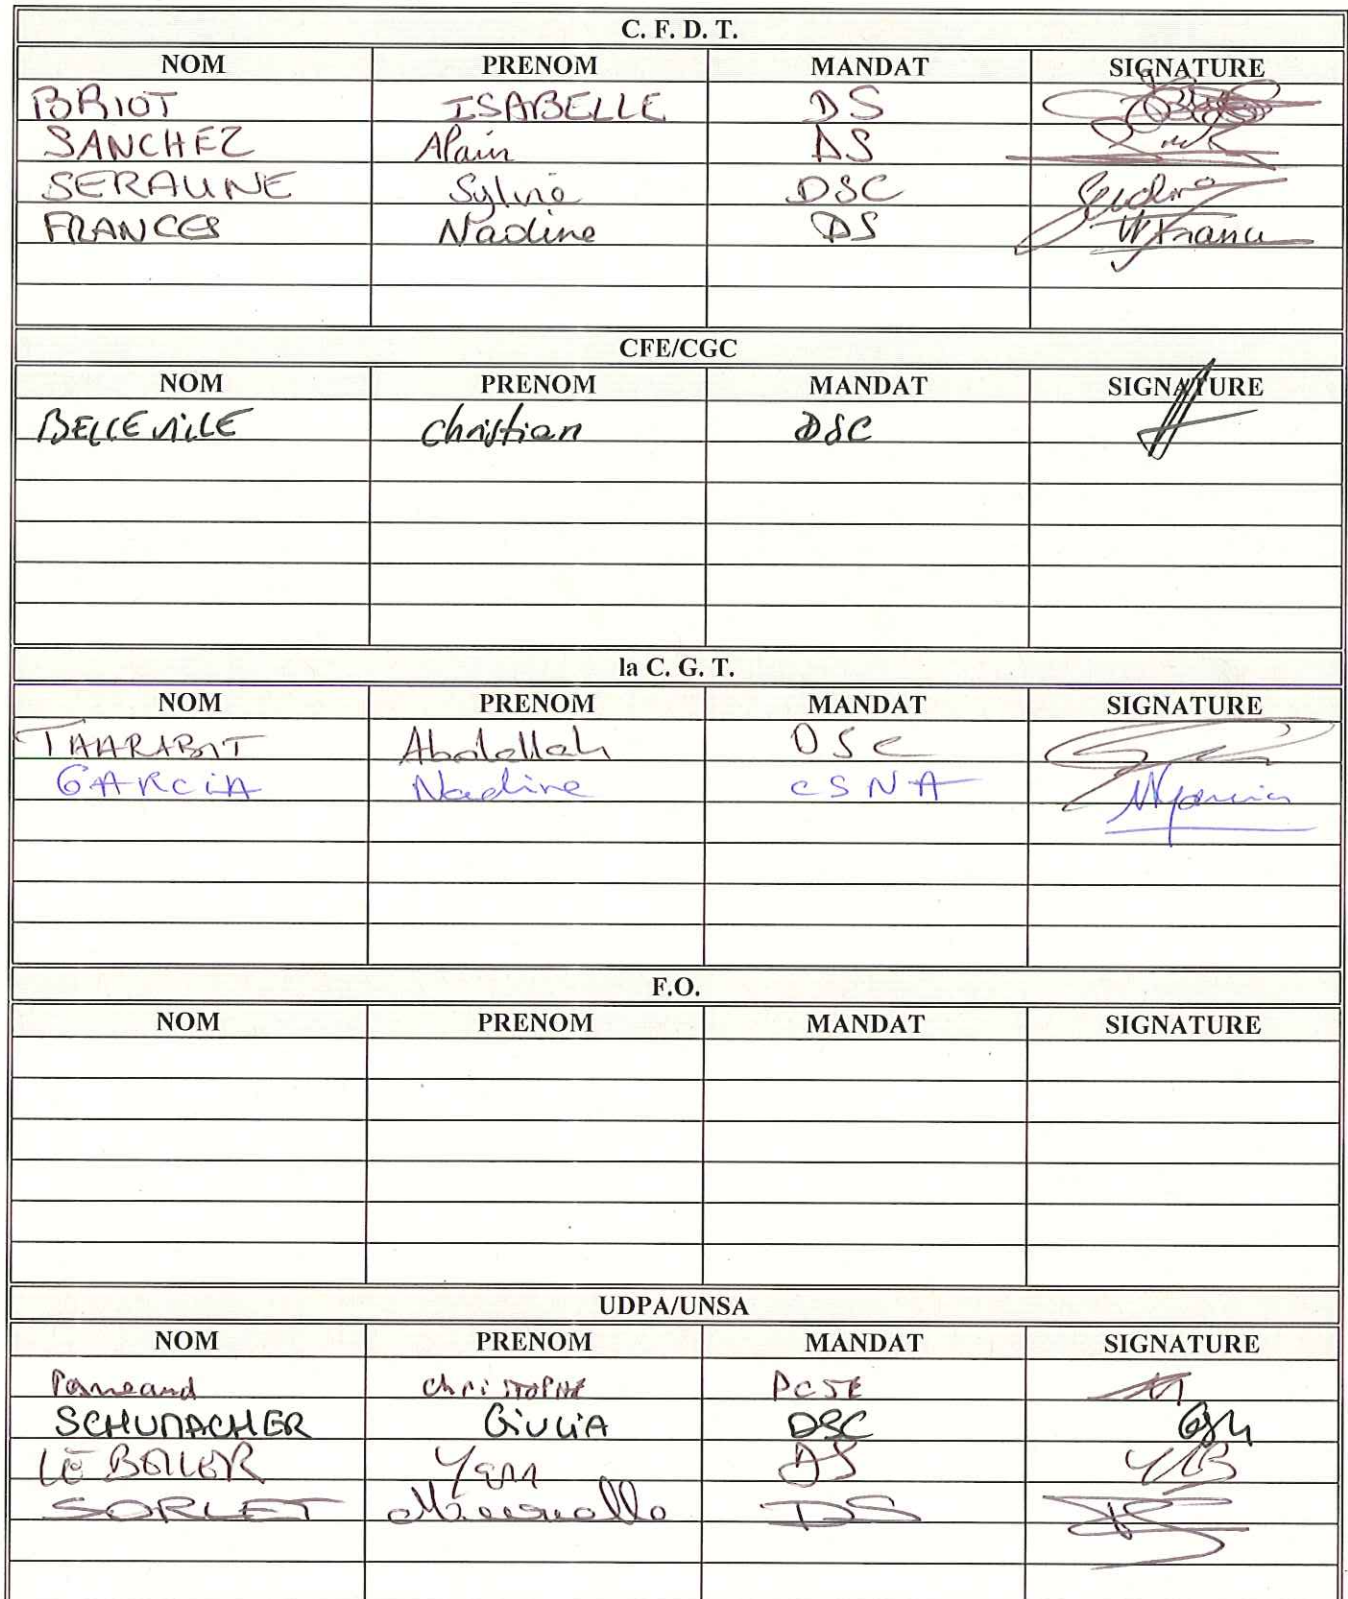 C. F. D. T.
NOM PRENOM MANDAT SIGNATURE
BRIOT ISABELLE DS
SANCHEZ Alain DS
SERAUNE Sylvie DSC
FRANCES Nadine DS
CFE/CGC
NOM PRENOM MANDAT SIGNATURE
BELLEVILLE Christian DSC
la C. G. T.
NOM PRENOM MANDAT SIGNATURE
TAHRABIT Abdellah DSC
GARCIA Nadine CSNA
F.O.
NOM PRENOM MANDAT SIGNATURE
UDPA/UNSA
NOM PRENOM MANDAT SIGNATURE
Christophe
SCHUMACHER GIULIA DSC
Yann DS
SORLET DS